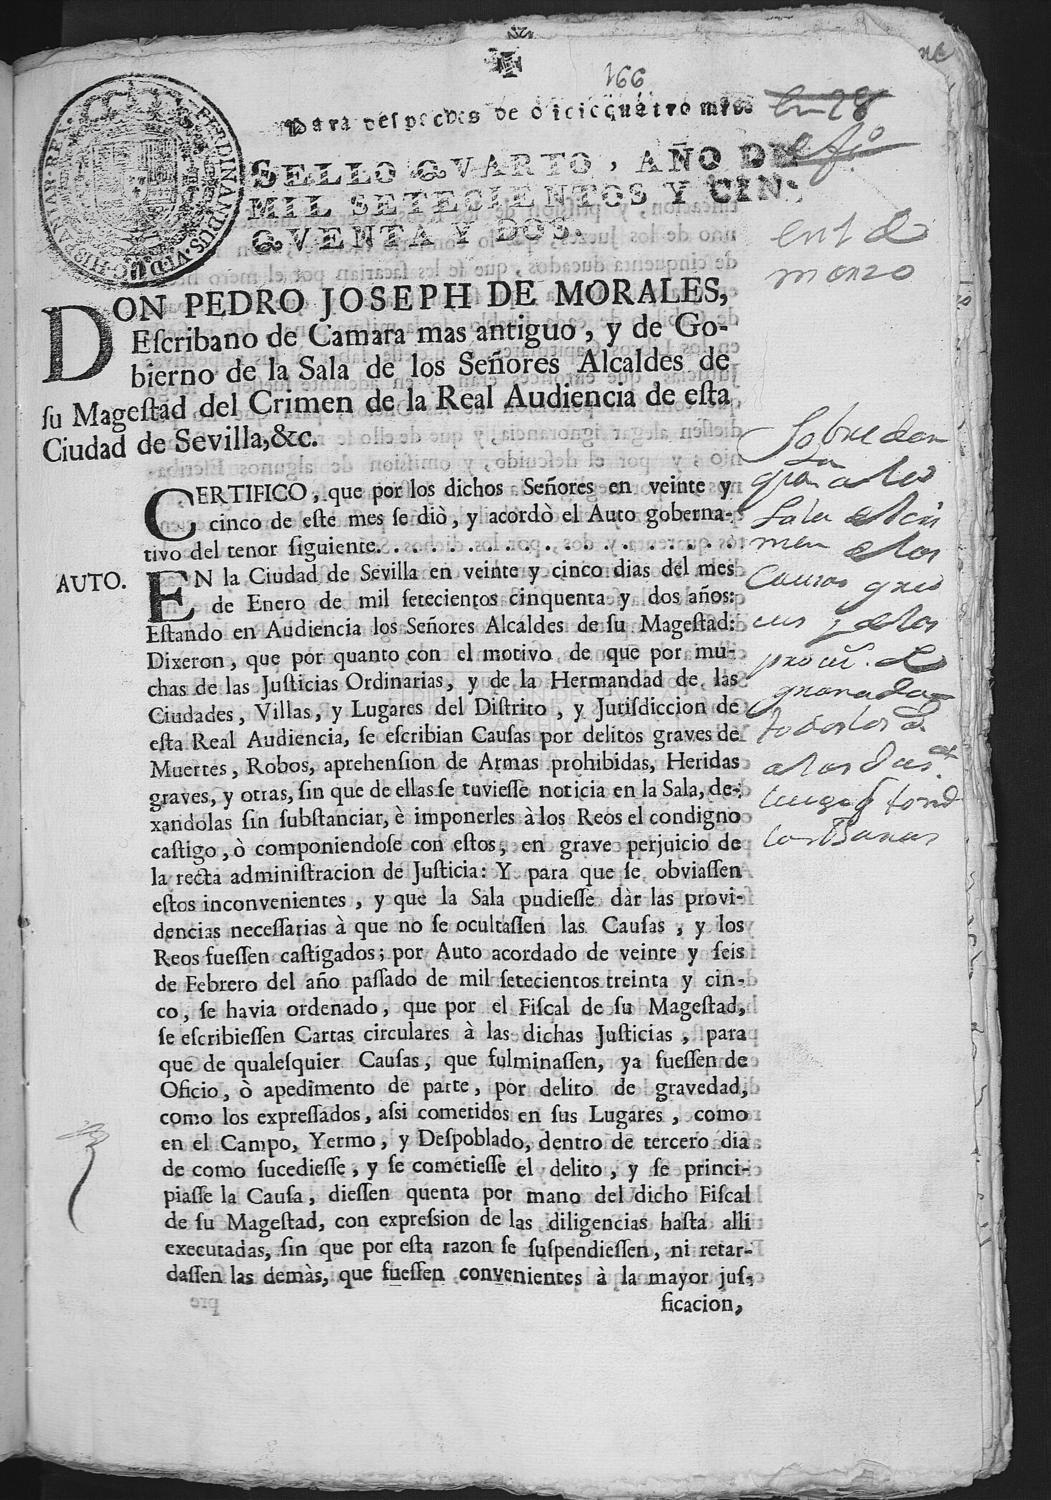 166
Para despeches de oficio quatro mrs.
SELLO QVARTO, AÑO DE
MIL SETECIENTOS Y CIN-
QVENTA Y DOS.
FERDINANDUS. VI. D. G. HISPANIAR. REX.
DON PEDRO JOSEPH DE MORALES,
Eſcribano de Camara mas antiguo, y de Go-
bierno de la Sala de los Señores Alcaldes de
ſu Mageſtad del Crimen de la Real Audiencia de eſta
Ciudad de Sevilla, &c.
CERTIFICO, que por los dichos Señores en veinte y
cinco de eſte mes ſe diò, y acordò el Auto goberna-
tivo del tenor ſiguiente. . . . . . . . . . . . . . . . . . . .
AUTO. EN la Ciudad de Sevilla en veinte y cinco dias del mes
de Enero de mil ſetecientos cinquenta y dos años:
Eſtando en Audiencia los Señores Alcaldes de ſu Mageſtad:
Dixeron, que por quanto con el motivo de que por mu-
chas de las Juſticias Ordinarias, y de la Hermandad de las
Ciudades, Villas, y Lugares del Diſtrito, y Juriſdiccion de
eſta Real Audiencia, ſe eſcribian Cauſas por delitos graves de
Muertes, Robos, aprehenſion de Armas prohibidas, Heridas
graves, y otras, ſin que de ellas ſe tuvieſſe noticia en la Sala, de-
xandolas ſin ſubſtanciar, è imponerles à los Reos el condigno
caſtigo, ò componiendoſe con eſtos, en grave perjuicio de
la recta adminiſtracion de Juſticia: Y para que ſe obviaſſen
eſtos inconvenientes, y que la Sala pudieſſe dàr las provi-
dencias neceſſarias à que no ſe ocultaſſen las Cauſas, y los
Reos fueſſen caſtigados; por Auto acordado de veinte y ſeis
de Febrero del año paſſado de mil ſetecientos treinta y cin-
co, ſe havia ordenado, que por el Fiſcal de ſu Mageſtad,
ſe eſcribieſſen Cartas circulares à las dichas Juſticias, para
que de qualeſquier Cauſas, que fulminaſſen, ya fueſſen de
Oficio, ò apedimento de parte, por delito de gravedad,
como los expreſſados, aſsi cometidos en ſus Lugares, como
en el Campo, Yermo, y Deſpoblado, dentro de tercero dia
de como ſucedieſſe, y ſe cometieſſe el delito, y ſe princi-
piaſſe la Cauſa, dieſſen quenta por mano del dicho Fiſcal
de ſu Mageſtad, con expreſsion de las diligencias haſta alli
executadas, ſin que por eſta razon ſe ſuſpendieſſen, ni retar-
daſſen las demàs, que fueſſen convenientes à la mayor juſ-
ficacion,
en 28
en 1 de
marzo
Sobre dar
a la
Sala del cri
men de las
causas
y de las
todos los